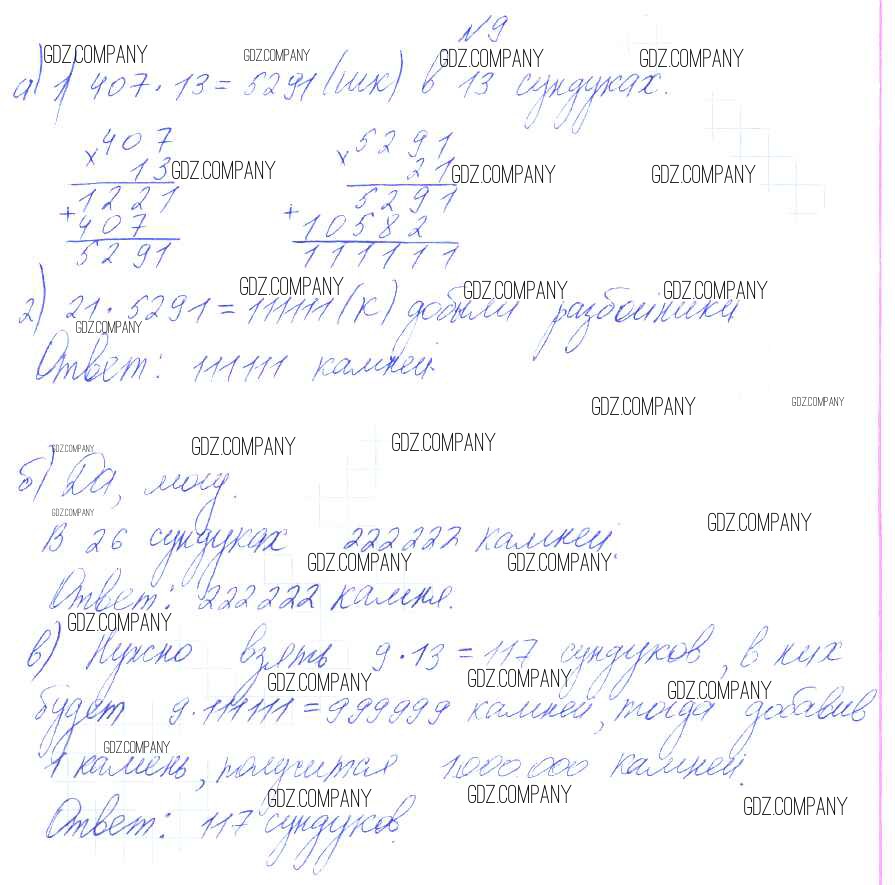 N9
GDZ.COMPANY GDZ.COMPANY GDZ.COMPANY GDZ.COMPANY
а) 1) 407 · 13 = 5291 (шк) в 13 сундуках.
× 407 × 5291
13 GDZ.COMPANY 21 GDZ.COMPANY GDZ.COMPANY
1221 5291
+ 407 + 10582
5291 111111
GDZ.COMPANY GDZ.COMPANY GDZ.COMPANY
2) 21 · 5291 = 111111 (к) добыли разбойники
GDZ.COMPANY
Ответ: 111111 камней.
GDZ.COMPANY GDZ.COMPANY
GDZ.COMPANY GDZ.COMPANY GDZ.COMPANY
б) Да, могу.
GDZ.COMPANY GDZ.COMPANY
В 26 сундуках 222222 камней.
GDZ.COMPANY GDZ.COMPANY
Ответ: 222222 камня.
GDZ.COMPANY
в) Нужно взять 9 · 13 = 117 сундуков, в них
GDZ.COMPANY GDZ.COMPANY GDZ.COMPANY
будет 9 · 111111 = 999999 камней, тогда добавив
GDZ.COMPANY
1 камень, получится 1000000 камней.
GDZ.COMPANY GDZ.COMPANY GDZ.COMPANY
Ответ: 117 сундуков.